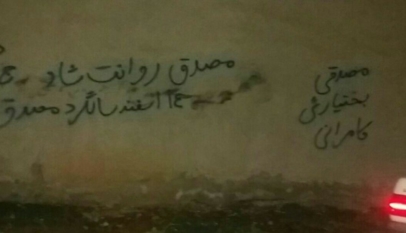 مصدق روانت شاد
۱۴ اسفند سالگرد مصدق
مصدقی
بختیارش
کامرانی